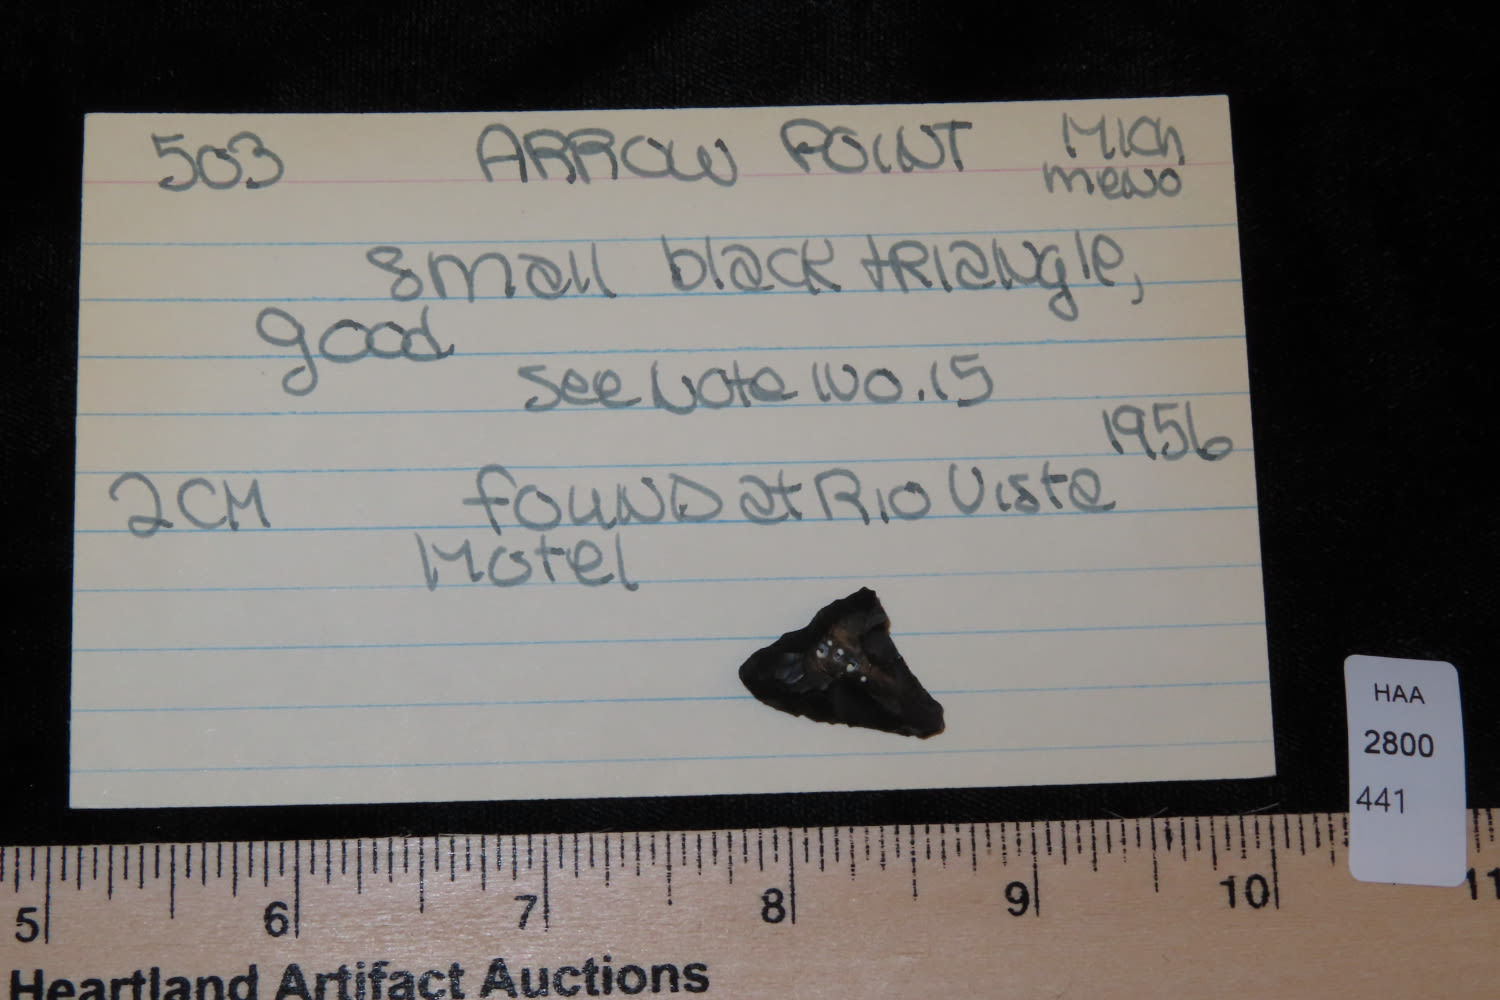 503 ARROW POINT Mich
meno
small black triangle,
good
see Note No. 15
1956
2CM found at Rio Vista
Motel
HAA
2800
441
5 6 7 8 9 10 11
Heartland Artifact Auctions